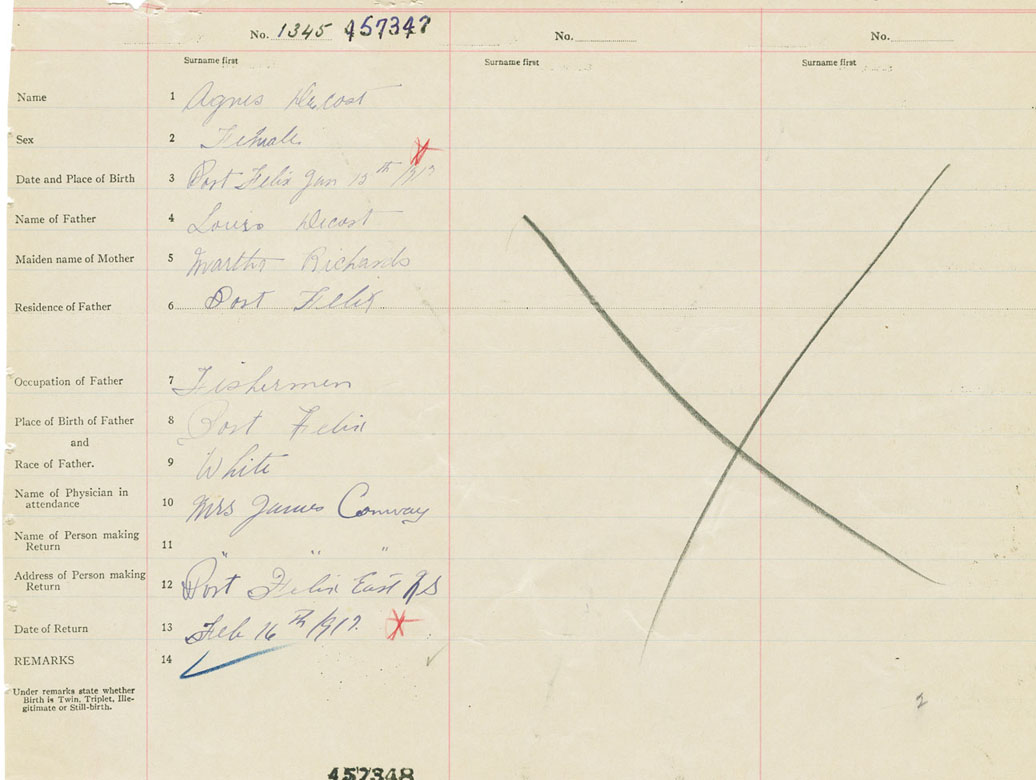 No. 1345 457347 No. No.
Surname first Surname first Surname first
Name 1 Agnes Decost
Sex 2 Female
Date and Place of Birth 3 Port Felix Jan 15th
Name of Father 4 Louis Decost
Maiden name of Mother 5 Martha Richards
Residence of Father 6 Port Felix
Occupation of Father 7 Fishermen
Place of Birth of Father 8 Port Felix
and
Race of Father. 9 White
Name of Physician in
attendance 10 Mrs James Conway
Name of Person making
Return 11 " " "
Address of Person making
Return 12 Port Felix East NS
Date of Return 13 Feb 16th
REMARKS 14
Under remarks state whether
Birth is Twin, Triplet, Ille-
gitimate or Still-birth.
2
457348